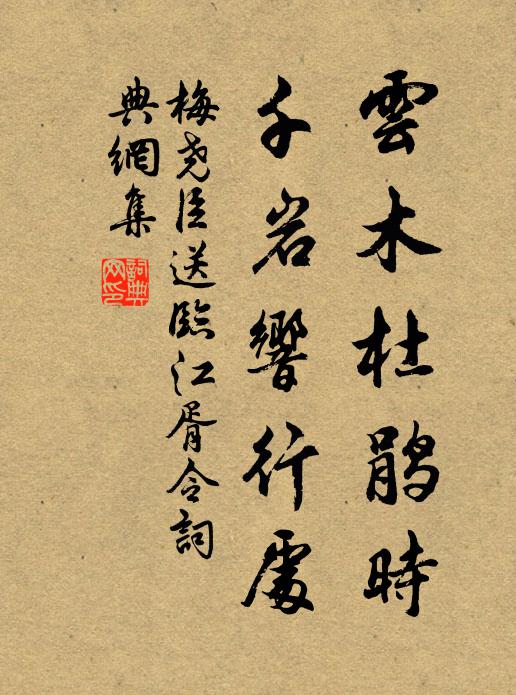 雲木杜鵑時
千岩響行處
梅尧臣送臨江胥令詞
典網集
詞典網印